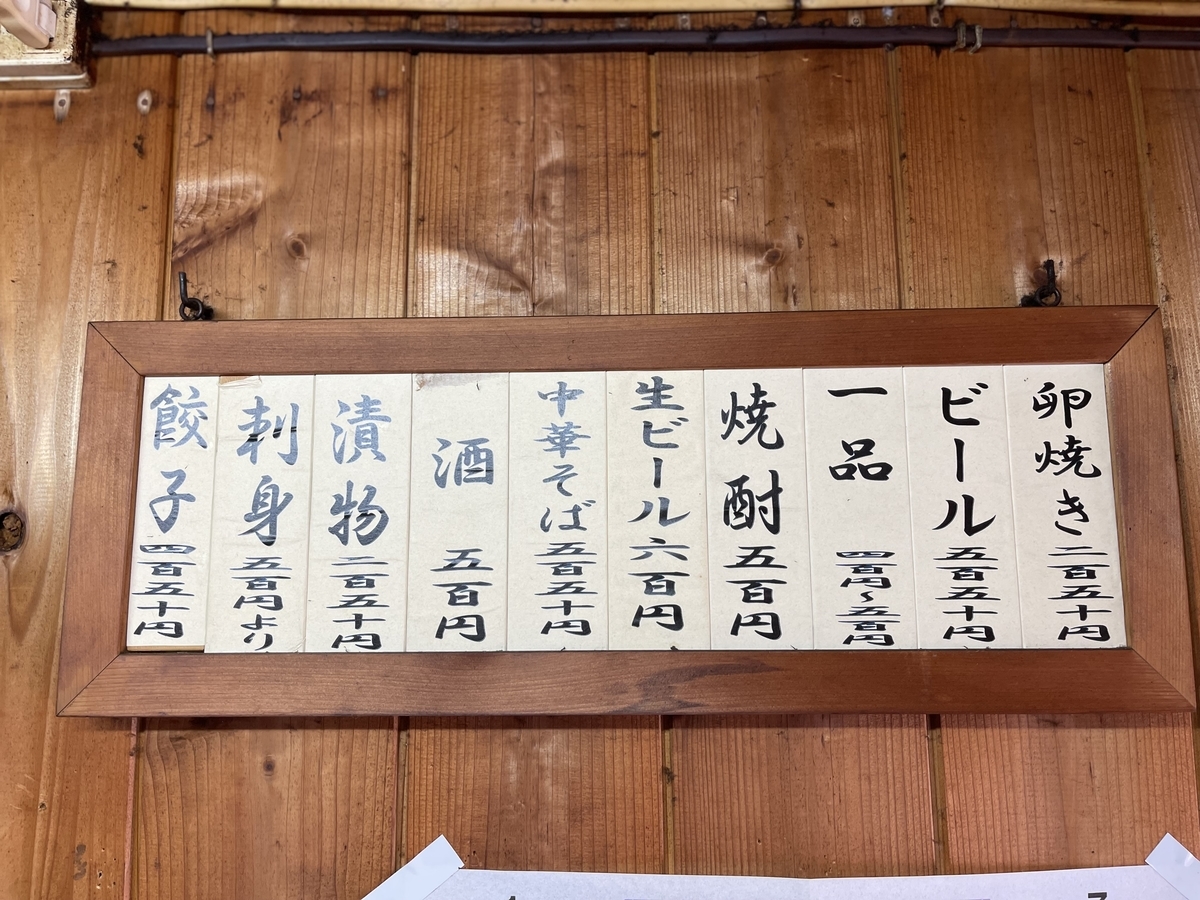 卵焼き 二百五十円
ビール 五百五十円
一品 四百円〜五百円
焼酎 五百円
生ビール 六百円
中華そば 五百五十円
酒 五百円
漬物 二百五十円
刺身 五百円より
餃子 四百五十円